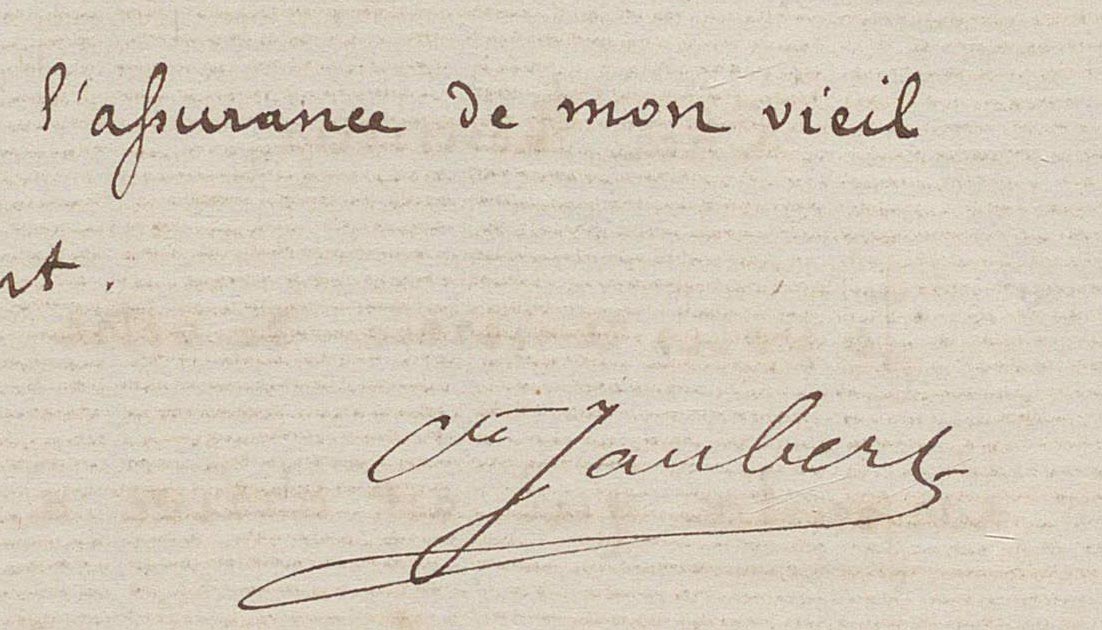 l'assurance de mon vieil
nt.
Cte Jaubert